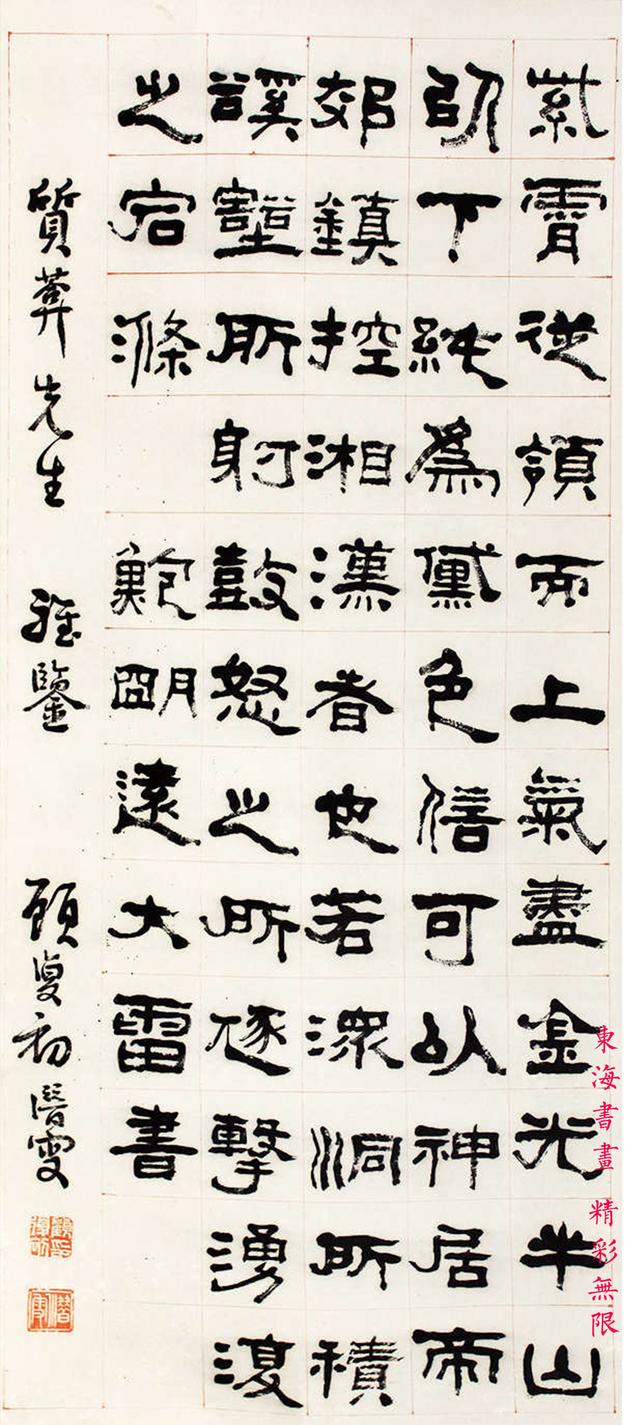 紫霄從領而上氣盡金光半山
以下純為黛色信可以神居帝
郊鎮控湘漢者也若潀洞所積
谿壑所射鼓怒之所豗擊湧澓
之宕滌 鮑明遠大雷書
質先生 雅鑒 顧复初潛叟
東海書畫 精彩無限